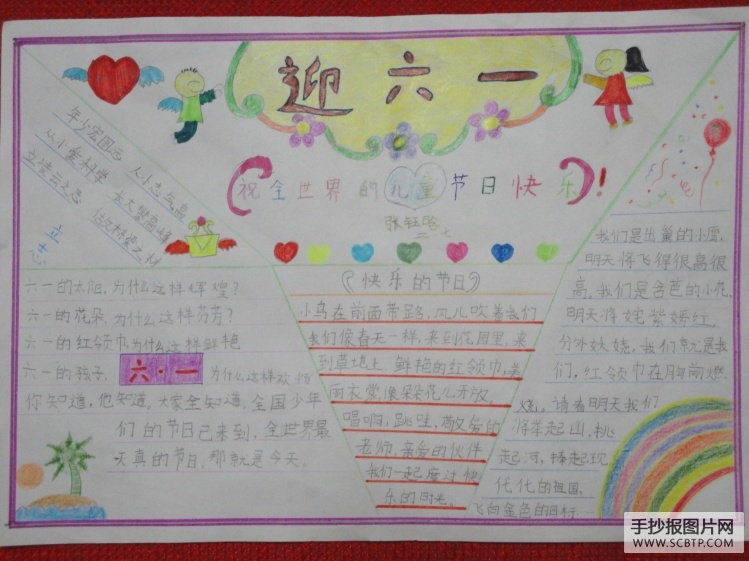 迎六一
祝全世界的儿童节日快乐!
年少宏图远
从小志气高
从小爱科学
长大攀高峰
立凌云之志
立志
快乐的节日
小鸟在前面带路,风儿吹着我们
我们像春天一样,来到花园里,来
到草地上 鲜艳的红领巾,美
雨衣裳像朵朵花儿开放
唱啊,跳哇,敬爱的
老师,亲爱的伙伴
我们一起度过快
乐的时光。
六一的太阳,为什么这样辉煌?
六一的花朵,为什么这样芬芳?
六一的红领巾为什么这样鲜艳
六一的孩子, 六·一 为什么这样欢扬
你知道,他知道。大家全知道,全国少年
们的节日已来到,全世界最
天真的节日,那就是今天。
我们是出巢的小鹰,
明天将飞得很高很
高。我们是含苞的小花,
明天将姹紫嫣红,
分外妖娆。我们就是我
们,红领巾在胸前燃
烧。请看明天我们
将举起山,挑
起河,捧起现
代化的祖国,
飞向金色的目标
手抄报图片网
WWW.SCBTP.COM